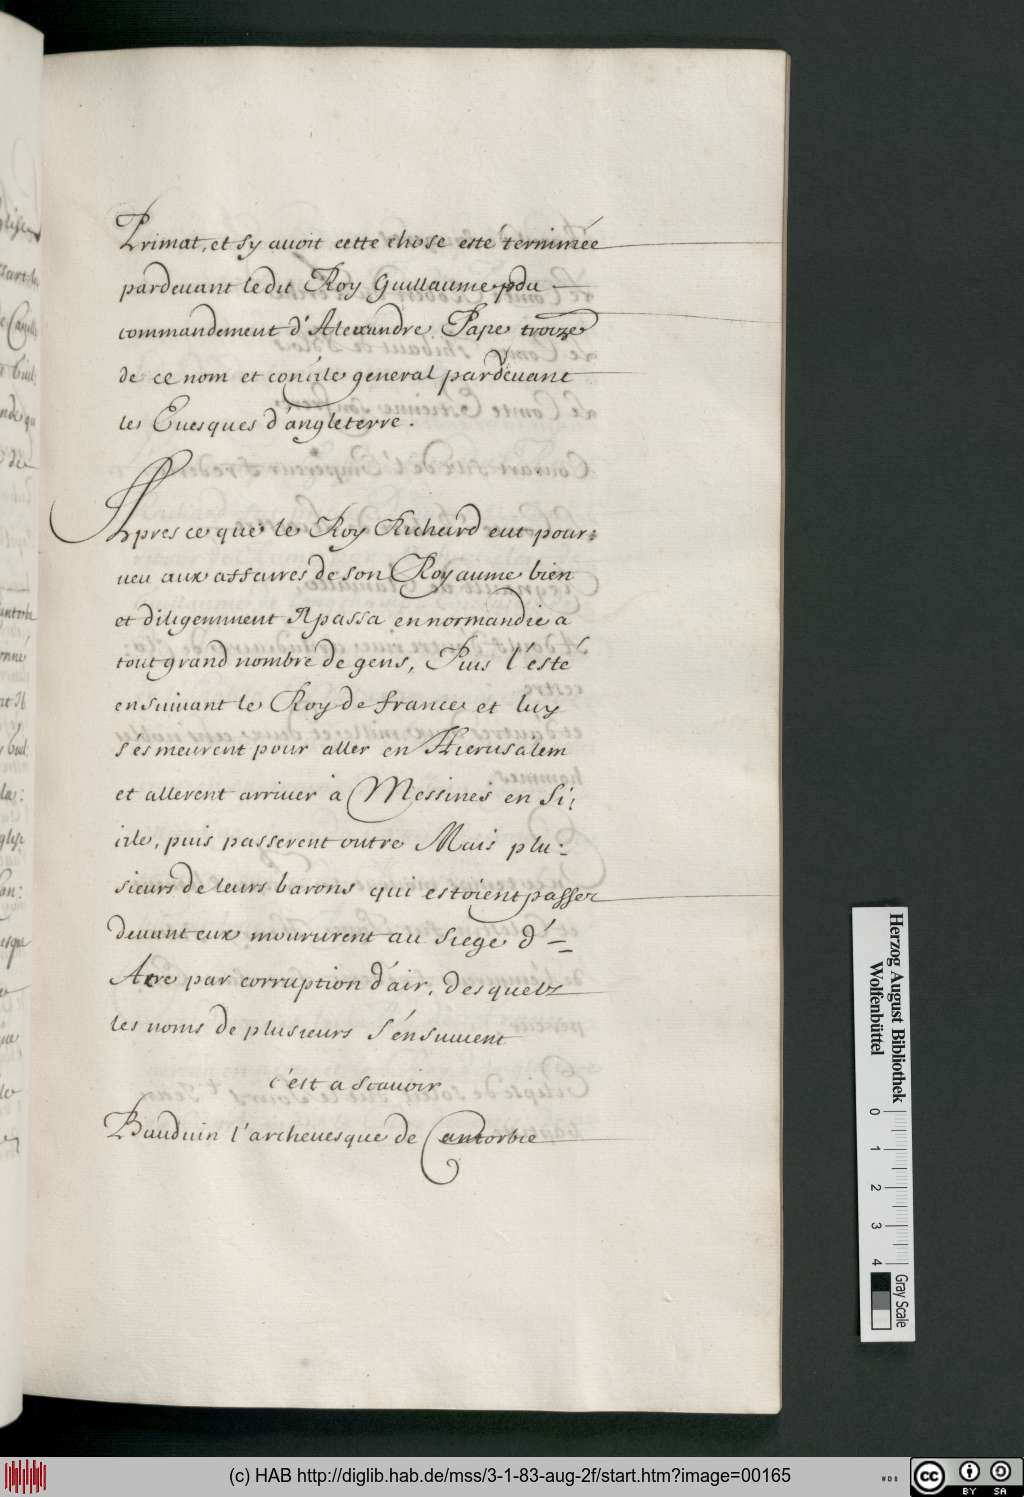 Primat, et sy auoit cette chose esté terminée
pardeuant ledit Roy Guillaume pdu
commandement d'Alexandre Pape troize
de ce nom et concile general pardeuant
les Euesques d'angleterre.
Apres ce que le Roy Richard eut pour:
ueu aux affaires de son Royaume bien
et diligemment Il passa en normandie a
tout grand nombre de gens, Puis l'esté
ensuiuant le Roy de france et luy
s'ésmeurent pour aller en Hierusalem
et allerent arriuer à Messines en Si:
cile, puis passerent outre Mais plu:
sieurs de leurs barons qui estoient passez
deuant eux moururent au siege d'
Acre par corruption d'air, desquels
les noms de plusieurs s'énsuiuent
c'est a scauoir
Bauduin l'archeuesque de Cantorbie
Herzog August Bibliothek
Wolfenbüttel
0 1 2 3 4
Gray Scale
(c) HAB http://diglib.hab.de/mss/3-1-83-aug-2f/start.htm?image=00165
WDB
cc BY SA